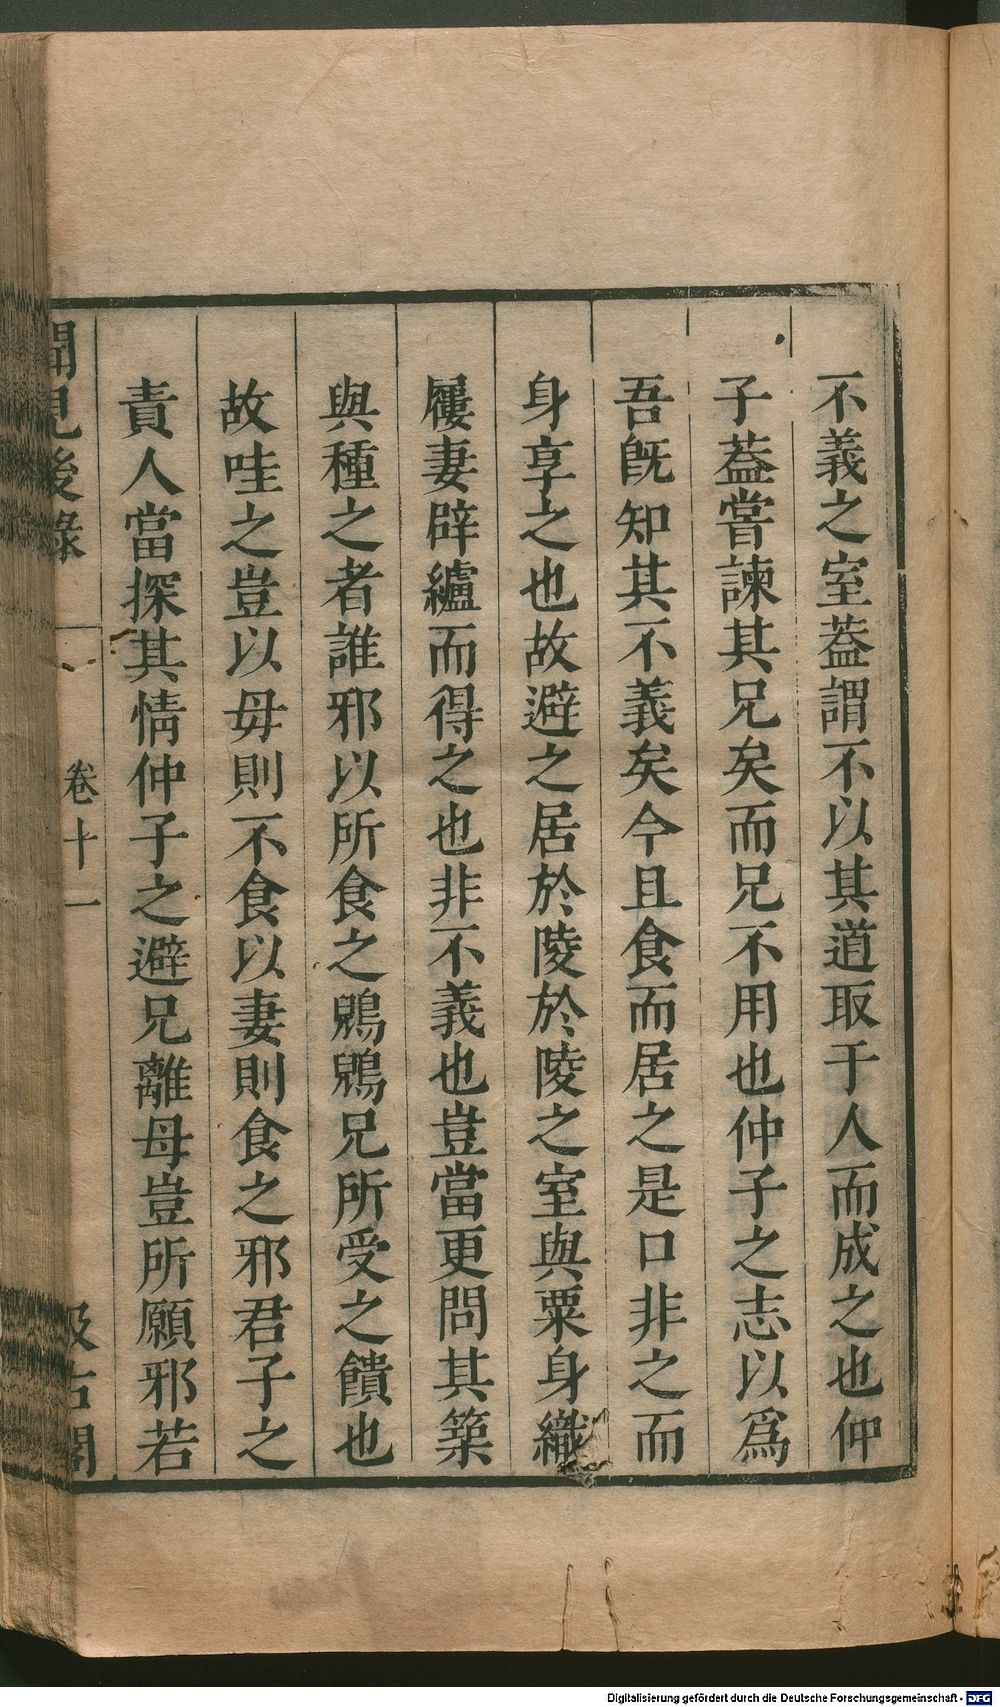 不義之室葢謂不以其道取于人而成之也仲
子葢嘗諫其兄矣而兄不用也仲子之志以爲
吾旣知其不義矣今且食而居之是口非之而
身享之也故避之居於陵於陵之室與粟身織
屨妻辟纑而得之也非不義也豈當更問其築
與種之者誰邪以所食之鶂鶂兄所受之饋也
故哇之豈以毋則不食以妻則食之邪君子之
責人當探其情仲子之避兄離母豈所願邪若
聞見後錄
卷十一
汲古閣
Digitalisierung gefördert durch die Deutsche Forschungsgemeinschaft - DFG